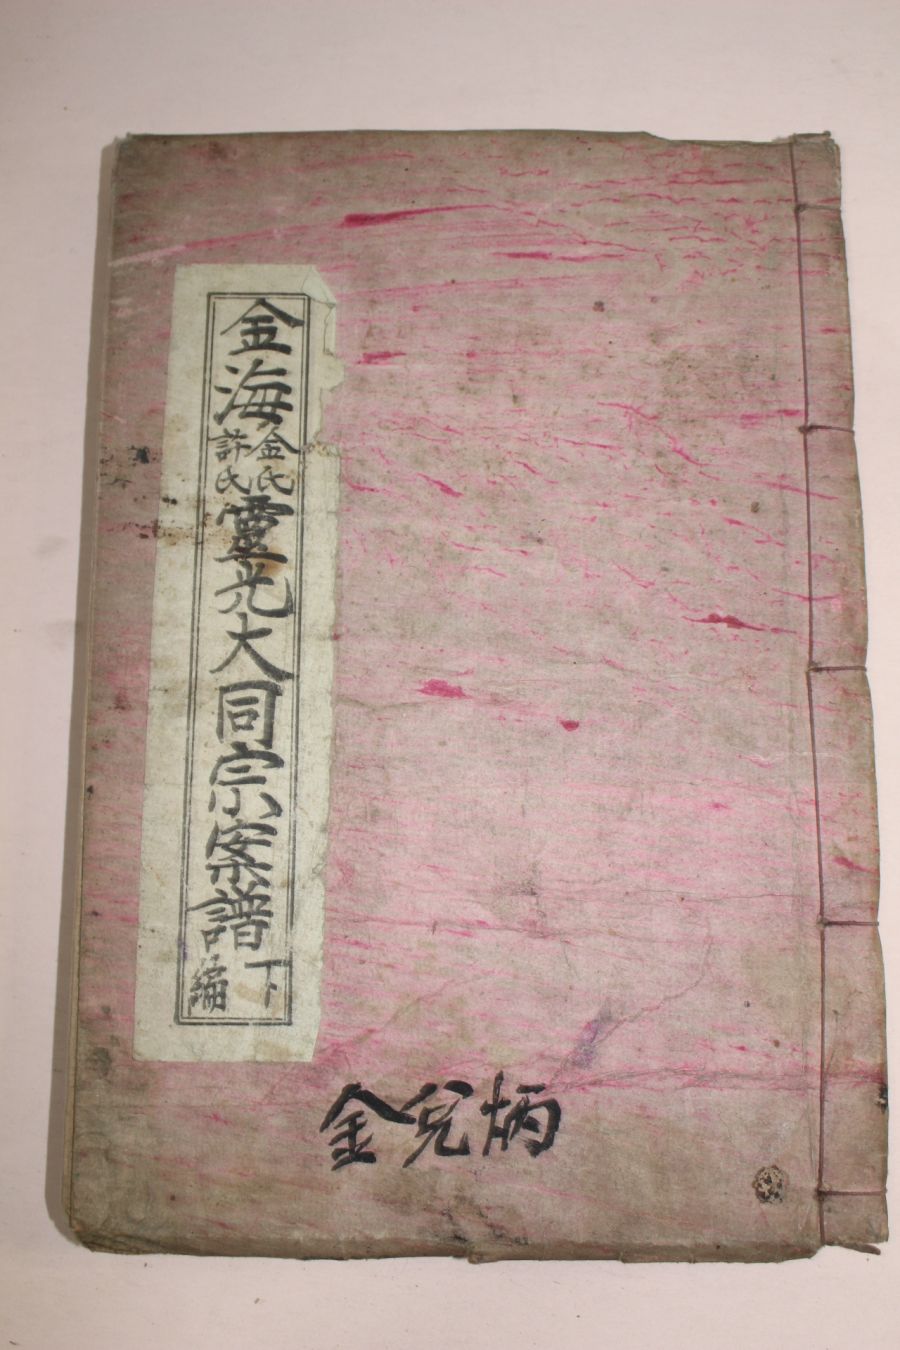 金海金氏許氏靈光大同宗案譜下編
金兌炳